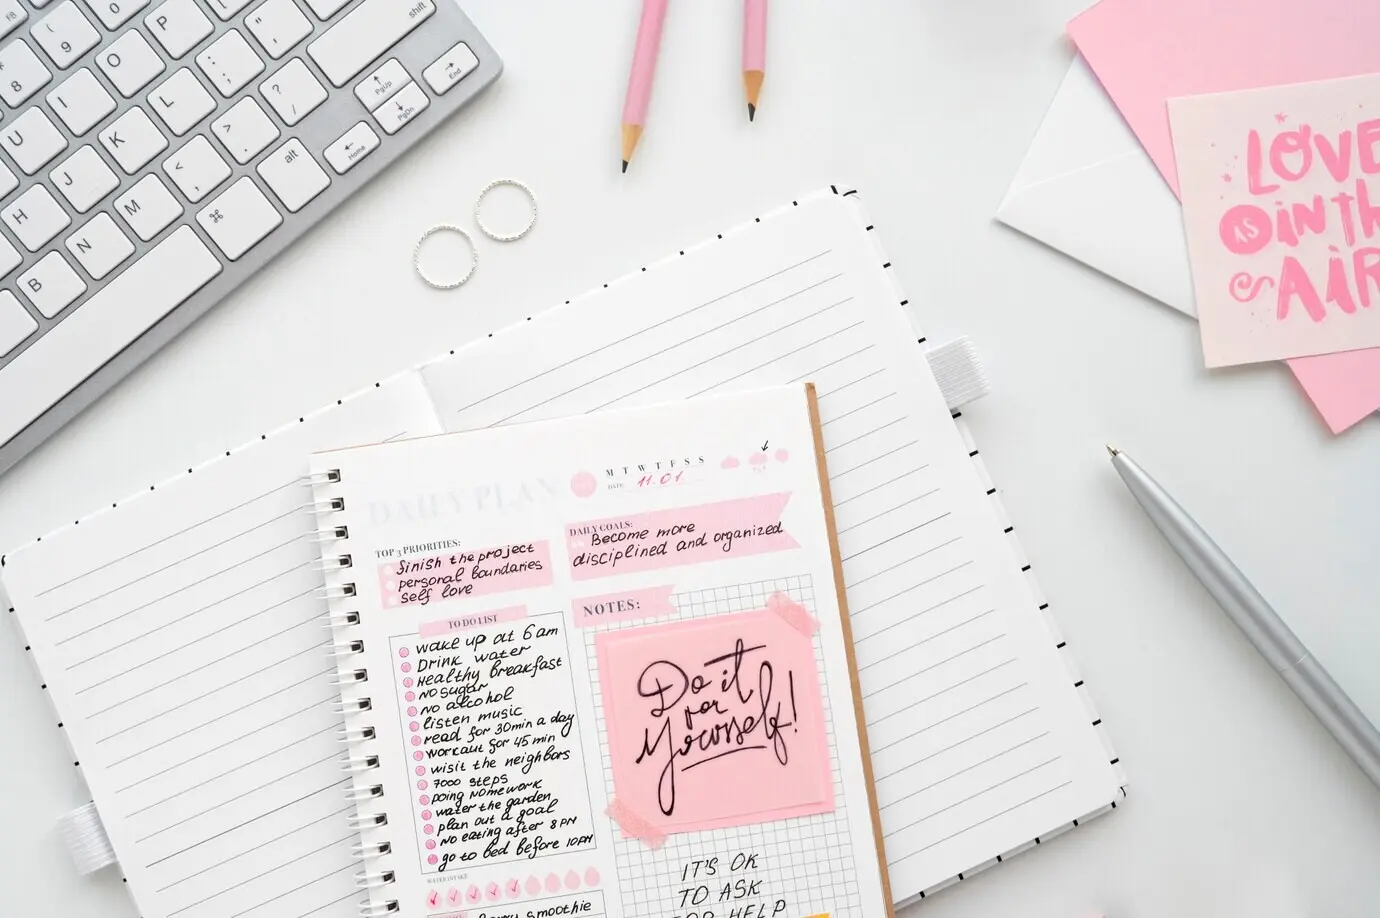 F8
shift
9
P
"
'
8
O
:
;
PgUp
End
I
L
?
/
PgDn
U
K
>
.
Home
J
<
,
alt
H
M
⌘
N
B
LOVE
AS in th
AiR
DAILY PLAN
M T W T F S S
DATE: 11.01
TOP 3 PRIORITIES:
finish the project
personal boundaries
self love
DAILY GOALS:
Become more
disciplined and organized
TO DO LIST
wake up at 6 am
Drink water
Healthy breakfast
no sugar
no alcohol
listen music
read for 30min a day
workout for 45 min
wisit the neighbors
7000 steps
doing homework
water the garden
plan out a goal
no eating after 8 PM
go to bed before 10PM
WATER INTAKE
smoothie
NOTES:
Do it
for
yourself!
IT'S OK
TO ASK
FOR HELP